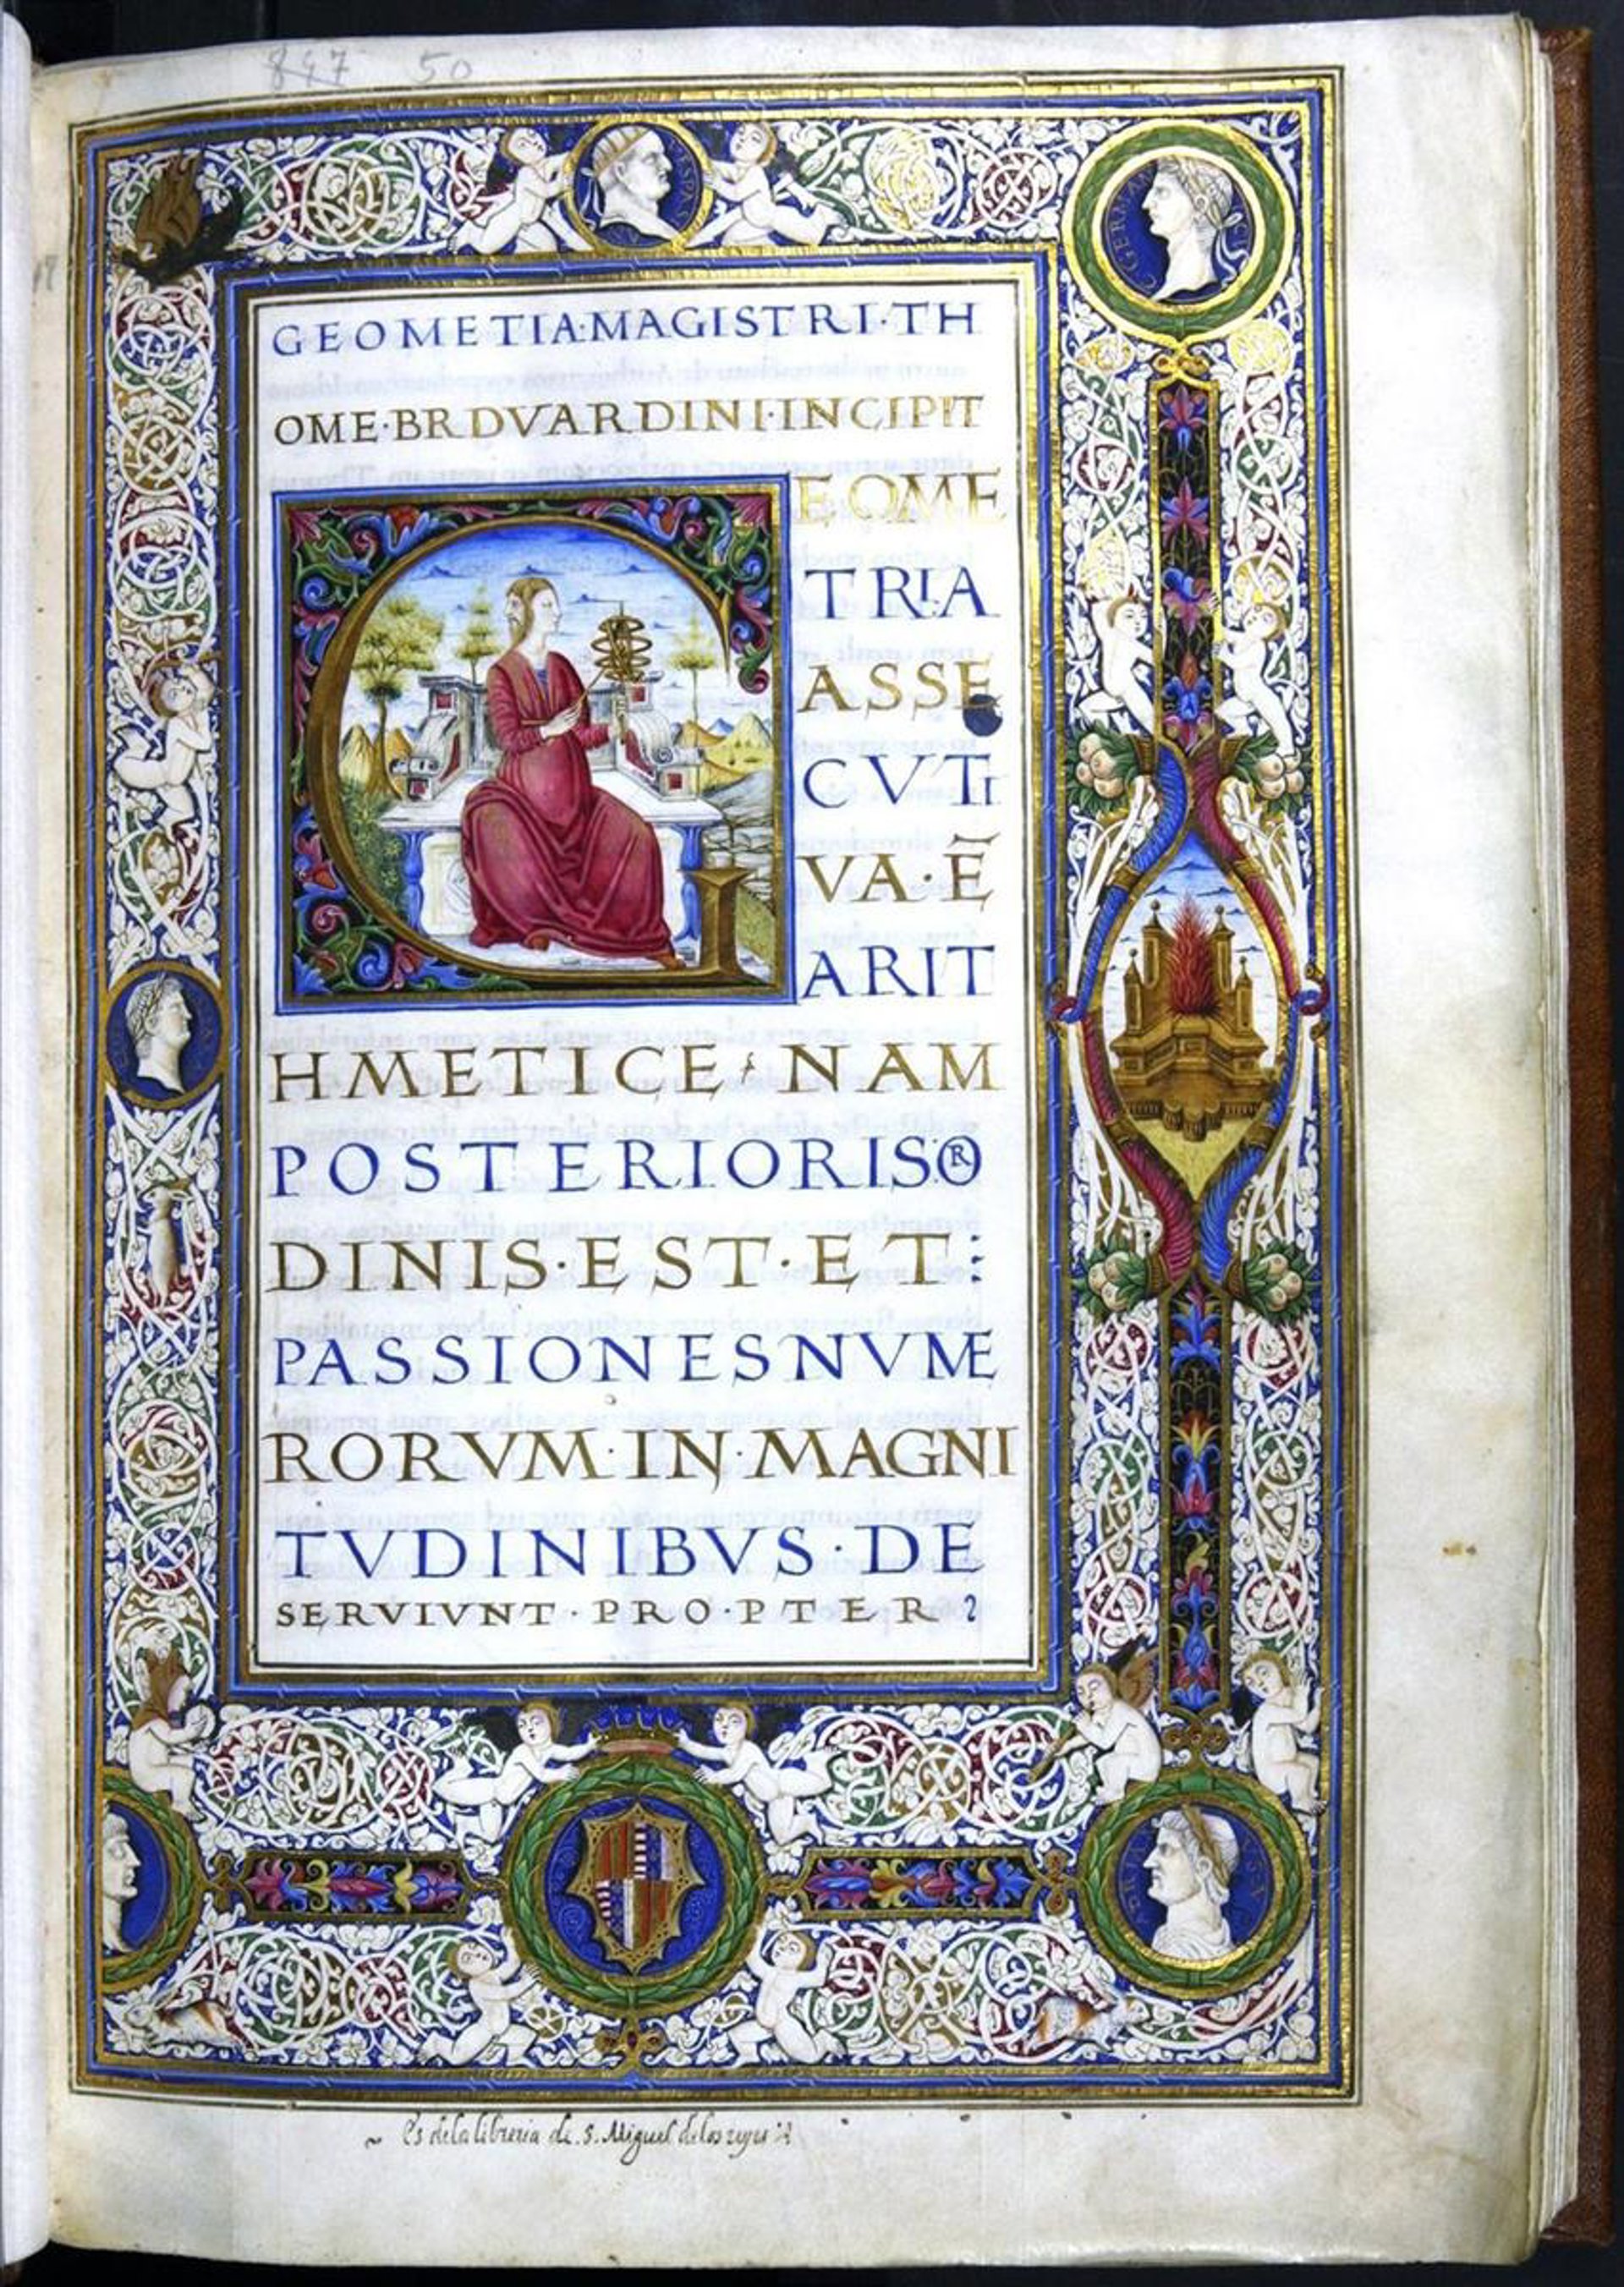 847 50
GEOMETIA·MAGISTRI·TH
OME·BRDVARDINI·INCIPIT
GEOME
TRIA
ASSE
CVTI
VA·E
ARIT
HMETICE: NAM
POSTERIORIS OR
DINIS·EST·ET:
PASSIONES NVME
RORVM·IN·MAGNI
TVDINIBVS·DE
SERVIVNT·PRO·PTER ?
Es dela libreria de .S. Miguel delos reyes